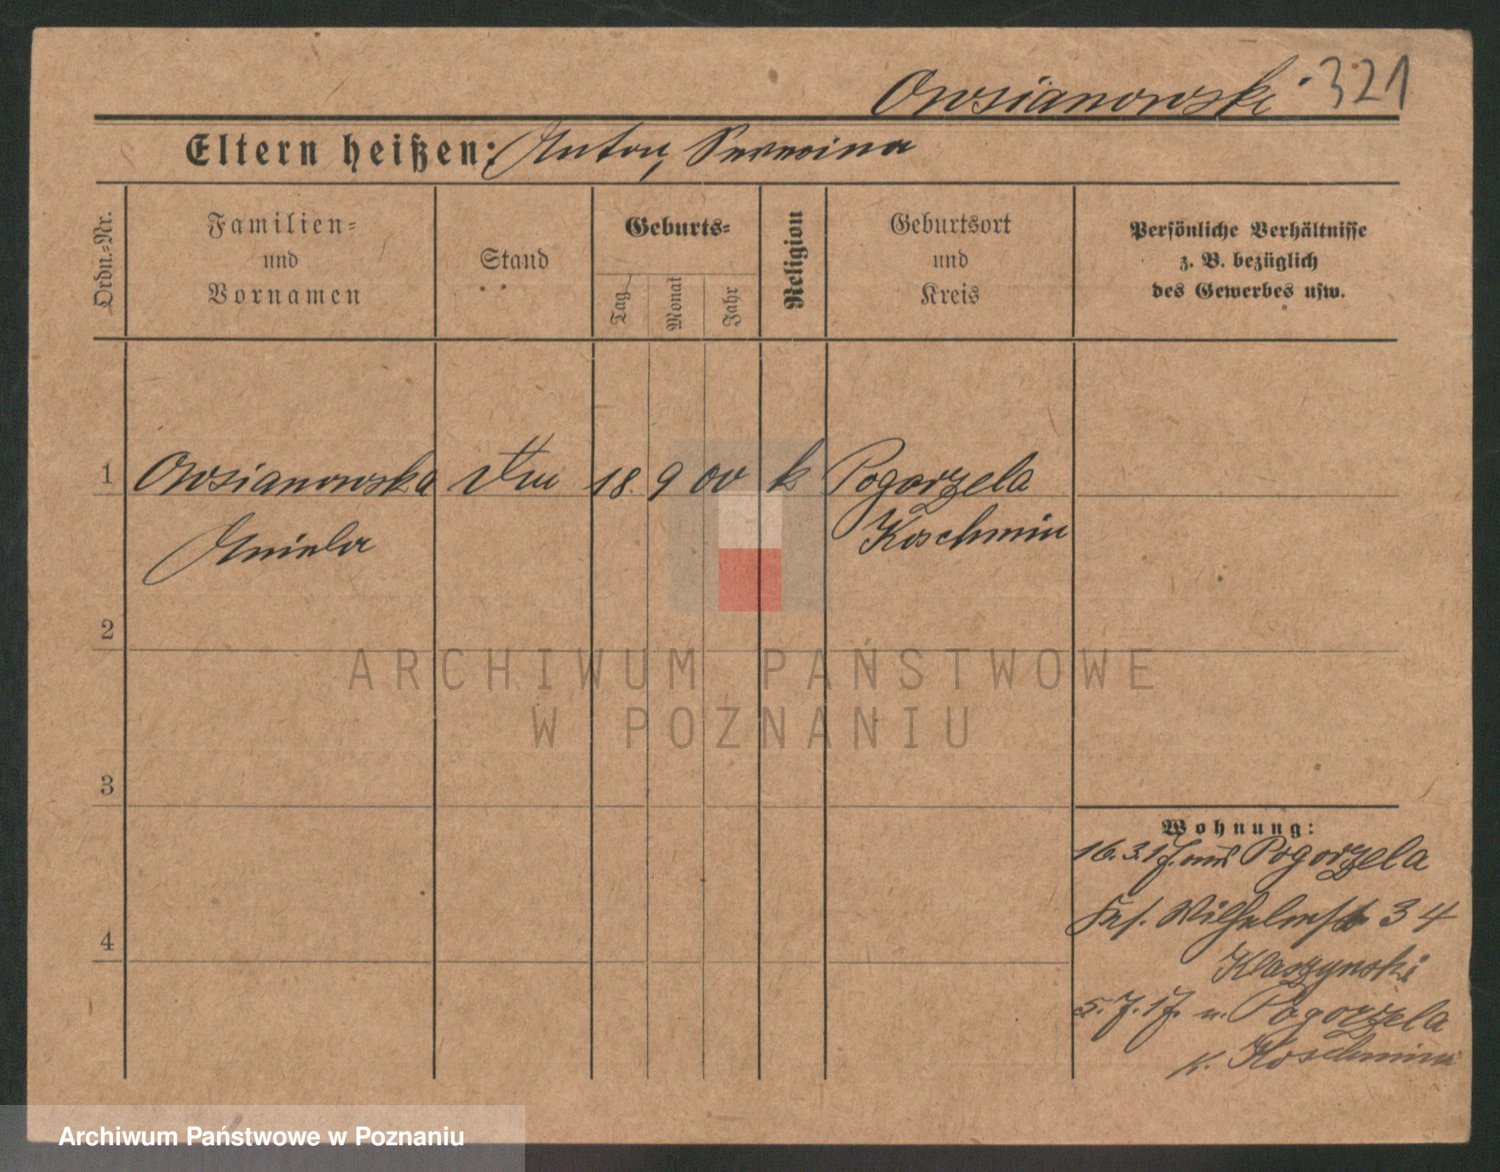 Owsianowski 321
Eltern heißen: Anton, Severina
Ordn.=Nr.
Familien=
und
Vornamen
Stand
Geburts=
Tag
Monat
Jahr
Religion
Geburtsort
und
Kreis
Persönliche Verhältnisse
z. B. bezüglich
des Gewerbes usw.
1 Owsianowska 18. 9 00 k Pogorzela
Aniela Koschmin
2
3
4
ARCHIWUM PAŃSTWOWE
W POZNANIU
Wohnung:
16.3.17. aus Pogorzela
Wilhelmstr 34
Klaszynski
5.7.17. n. Pogorzela
K. Koschmin
Archiwum Państwowe w Poznaniu